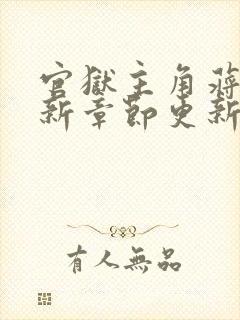 官獄主角蔣
新章節更新
有人無品